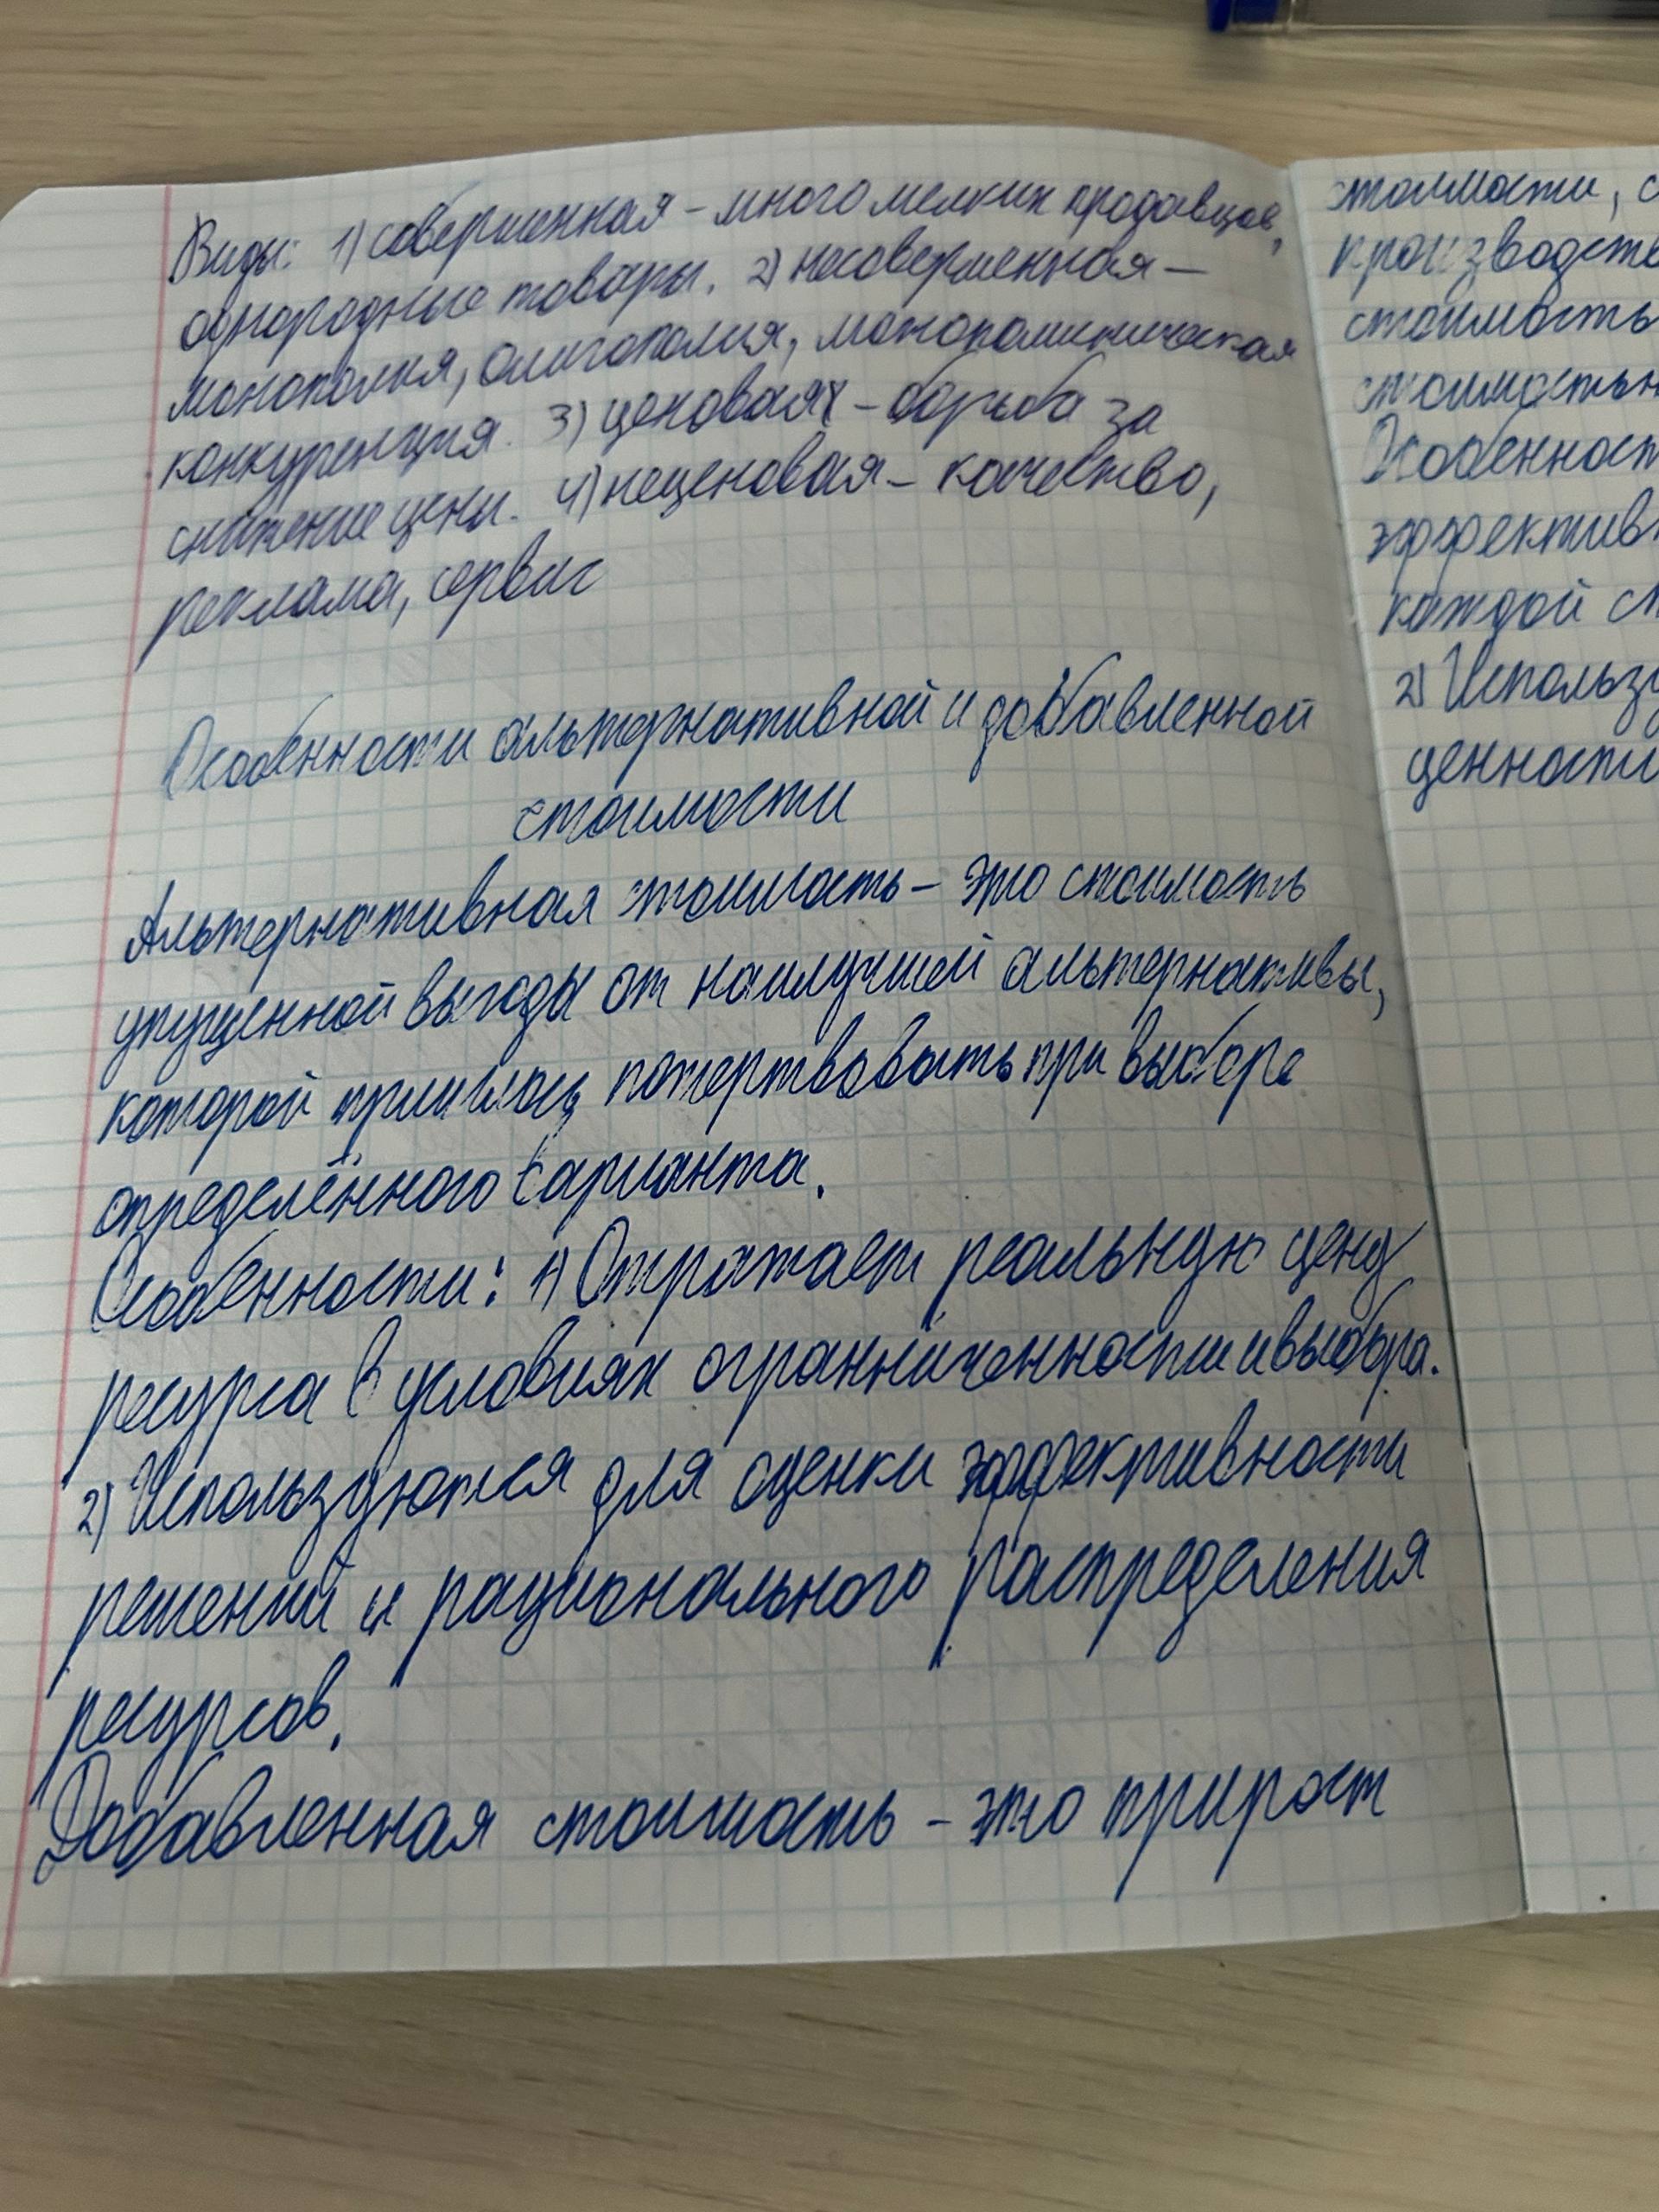 Виды: 1) совершенная – много мелких продавцов,
однородные товары. 2) несовершенная –
монополия, олигополия, монополиническая
конкуренция. 3) ценовая – борьба за
снижение цены. 4) неценовая – качество,
реклама, сервис
Особенности альтернативной и добавленной
стоимости
Альтернативная стоимость – это стоимость
упущенной выгоды от наилучшей альтернативы,
которой пришлось пожертвовать при выборе
определённого варианта.
Особенности: 1) Отражает реальную цену
ресурса в условиях ограниченности и выбора.
2) Используются для оценки эффективности
решений и рационального распределения
ресурсов.
Добавленная стоимость – это прирост
стоимости, с
производств
стоимость
стоимостью
Особенност
эффектив
каждой ст
2) Использу
ценности